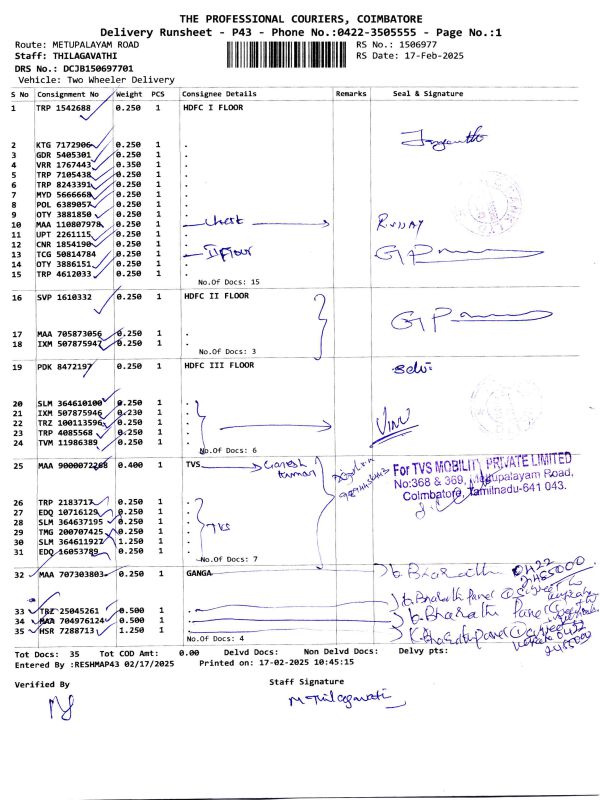 THE PROFESSIONAL COURIERS, COIMBATORE
Delivery Runsheet - P43 - Phone No.:0422-3505555 - Page No.:1
Route: METUPALAYAM ROAD RS No.: 1506977
Staff: THILAGAVATHI RS Date: 17-Feb-2025
DRS No.: DCJB150697701
Vehicle: Two Wheeler Delivery
S No Consignment No Weight PCS Consignee Details Remarks Seal & Signature
1 TRP 1542688 0.250 1 HDFC I FLOOR
2 KTG 7172906 0.250 1 .
3 GDR 5405301 0.250 1 .
4 VRR 1767443 0.350 1 .
5 TRP 7105438 0.250 1 .
6 TRP 8243391 0.250 1 .
7 MYD 5666668 0.250 1 .
8 POL 6389057 0.250 1 .
9 OTY 3881850 0.250 1 .
10 MAA 110807978 0.250 1 .
11 UPT 2261115 0.250 1 .
12 CNR 1854190 0.250 1 .
13 TCG 50814784 0.250 1 . II Floor
14 OTY 3886151 0.250 1 .
15 TRP 4612033 0.250 1 .
No.Of Docs: 15
16 SVP 1610332 0.250 1 HDFC II FLOOR
17 MAA 705873056 0.250 1 .
18 IXM 507875947 0.250 1 .
No.Of Docs: 3
19 PDK 8472197 0.250 1 HDFC III FLOOR Selvi
20 SLM 364610100 0.250 1 .
21 IXM 507875946 0.230 1 .
22 TRZ 100113596 0.250 1 .
23 TRP 4085568 0.250 1 .
24 TVM 11986389 0.250 1 .
No.Of Docs: 6
25 MAA 9000072268 0.400 1 TVS Ganesh Kumar
For TVS MOBILITY PRIVATE LIMITED
No:368 & 369, Mettupalayam Road,
Coimbatore, Tamilnadu-641 043.
26 TRP 2183717 0.250 1 .
27 EDQ 10716129 0.250 1 .
28 SLM 364637195 0.250 1 . TVS
29 TMG 200707425 0.250 1 .
30 SLM 364611927 1.250 1 .
31 EDQ 16053789 0.250 1 .
No.Of Docs: 7
32 MAA 707303803 0.250 1 GANGA b. Bharathi 0422
2465000
33 TRZ 25045261 0.500 1 .
34 MAA 704976124 0.500 1 . b. Bharathi
35 HSR 7288713 1.250 1 .
No.Of Docs: 4
Tot Docs: 35 Tot COD Amt: 0.00 Delvd Docs: Non Delvd Docs: Delvy pts:
Entered By :RESHMAP43 02/17/2025 Printed on: 17-02-2025 10:45:15
Verified By Staff Signature
M. Thilagavathi